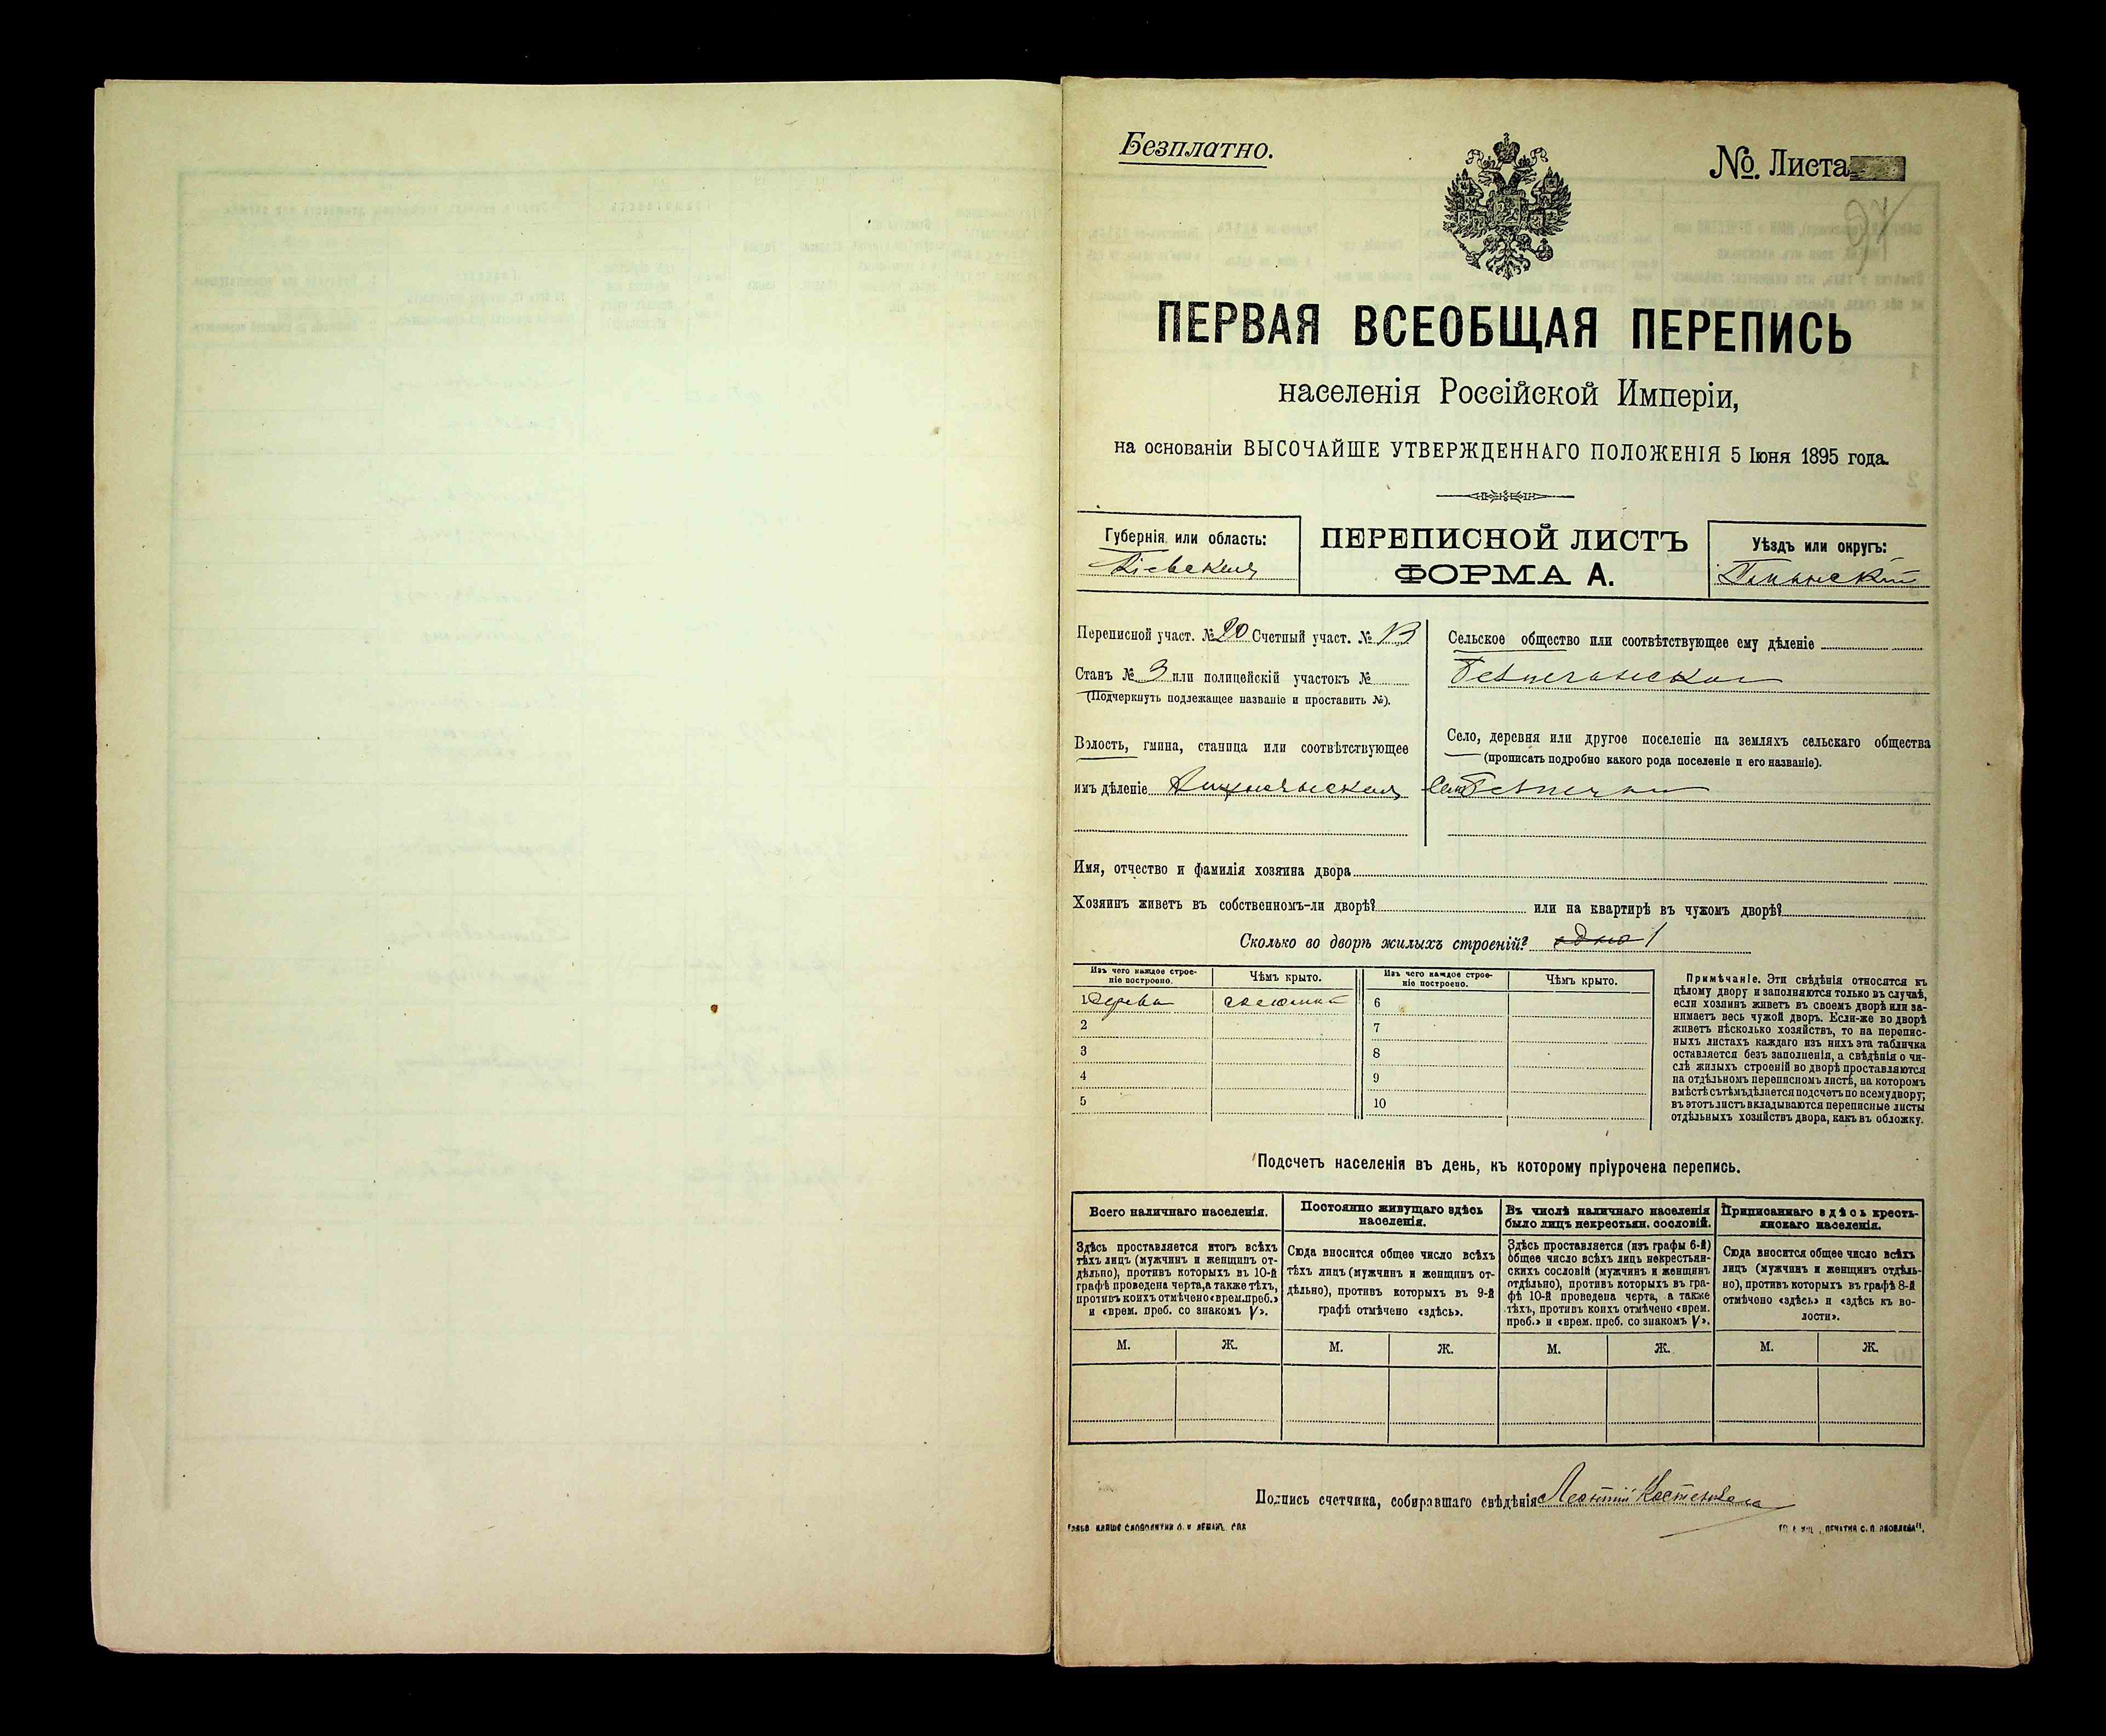 Безплатно.
№. Листа
ПЕРВАЯ ВСЕОБЩАЯ ПЕРЕПИСЬ
населенія Россійской Имперіи,
на основаніи ВЫСОЧАЙШЕ УТВЕРЖДЕННАГО ПОЛОЖЕНІЯ 5 Іюня 1895 года.
Губернія или область:
Кіевская
ПЕРЕПИСНОЙ ЛИСТЪ
ФОРМА А.
Уѣздъ или округъ:
Переписной участ. № 20 Счетный участ. № 13
Станъ № 3 или полицейскій участокъ №
(Подчеркнуть подлежащее названіе и проставить №).
Волость, гмина, станица или соотвѣтствующее
имъ дѣленіе
Сельское общество или соотвѣтствующее ему дѣленіе
Село, деревня или другое поселеніе на земляхъ сельскаго общества
(прописать подробно какого рода поселеніе и его названіе).
Имя, отчество и фамилія хозяина двора
Хозяинъ живетъ въ собственномъ-ли дворѣ? или на квартирѣ въ чужомъ дворѣ?
Сколько во дворѣ жилыхъ строеній? одно 1
Изъ чего каждое строе-
ніе построено.
Чѣмъ крыто.
Изъ чего каждое строе-
ніе построено.
Чѣмъ крыто.
1 Дерева соломой 6
2 7
3 8
4 9
5 10
Примѣчаніе. Эти свѣдѣнія относятся къ
цѣлому двору и заполняются только въ случаѣ,
если хозяинъ живетъ въ своемъ дворѣ или за-
нимаетъ весь чужой дворъ. Если-же во дворѣ
живетъ нѣсколько хозяйствъ, то на перепис-
ныхъ листахъ каждаго изъ нихъ эта табличка
оставляется безъ заполненія, а свѣдѣнія о чи-
слѣ жилыхъ строеній во дворѣ проставляются
на отдѣльномъ переписномъ листѣ, на которомъ
вмѣстѣ съ тѣмъ дѣлается подсчетъ по всему двору;
въ этотъ листъ вкладываются переписные листы
отдѣльныхъ хозяйствъ двора, какъ въ обложку.
Подсчетъ населенія въ день, къ которому пріурочена перепись.
Всего наличнаго населенія.
Здѣсь проставляется итогъ всѣхъ
тѣхъ лицъ (мужчинъ и женщинъ от-
дѣльно), противъ которыхъ въ 10-й
графѣ проведена черта, а также тѣхъ,
противъ коихъ отмѣчено «врем. преб.»
и «врем. преб. со знакомъ V».
М. Ж.
Постоянно живущаго здѣсь
населенія.
Сюда вносится общее число всѣхъ
тѣхъ лицъ (мужчинъ и женщинъ от-
дѣльно), противъ которыхъ въ 9-й
графѣ отмѣчено «здѣсь».
М. Ж.
Въ числѣ наличнаго населенія
было лицъ некрестьян. сословій.
Здѣсь проставляется (изъ графы 6-й)
общее число всѣхъ лицъ некрестьян-
скихъ сословій (мужчинъ и женщинъ
отдѣльно), противъ которыхъ въ гра-
фѣ 10-й проведена черта, а также
тѣхъ, противъ коихъ отмѣчено «врем.
преб.» и «врем. преб. со знакомъ V».
М. Ж.
Приписаннаго здѣсь кресть-
янскаго населенія.
Сюда вносится общее число всѣхъ
лицъ (мужчинъ и женщинъ отдѣль-
но), противъ которыхъ въ графѣ 8-й
отмѣчено «здѣсь» и «здѣсь къ во-
лости».
М. Ж.
Подпись счетчика, собиравшаго свѣдѣнія Леонтій